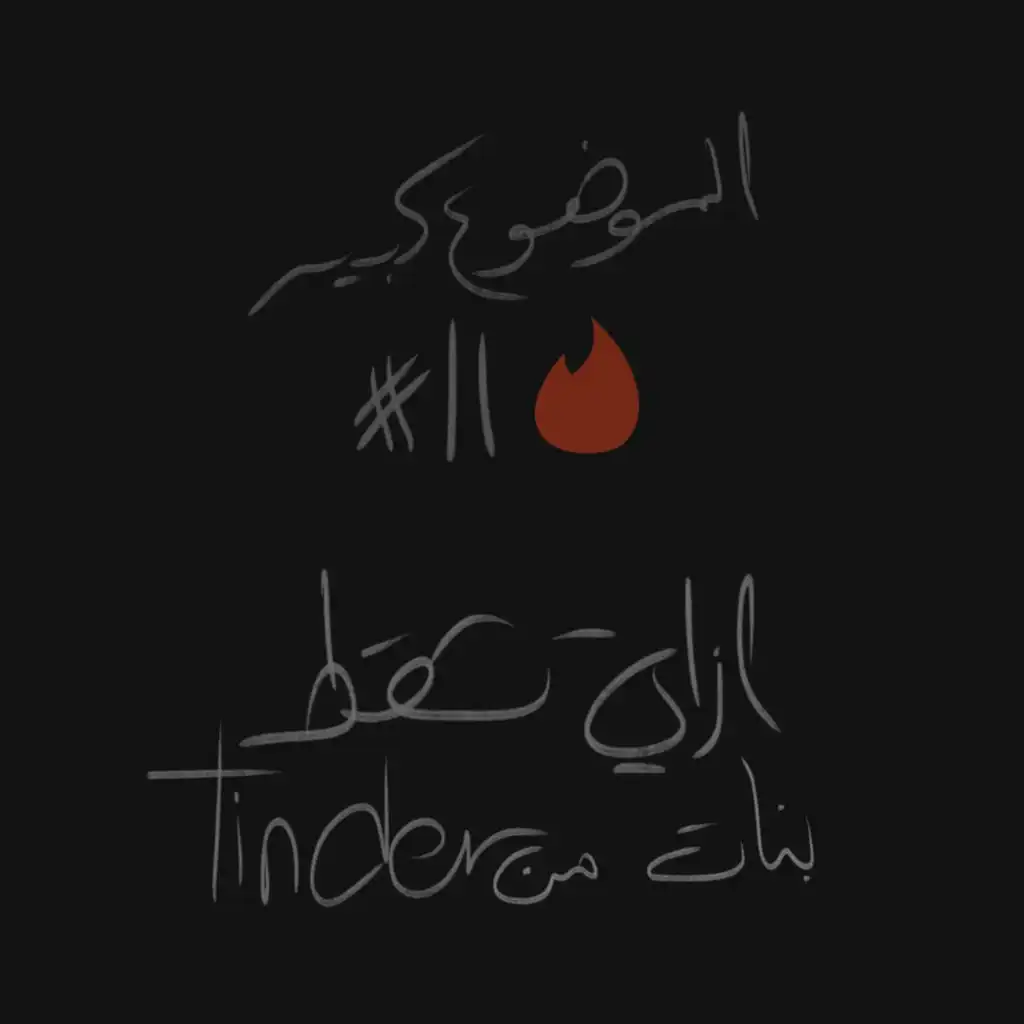 الموضوع كبير
#11
ازاي تسقط
بنات من Tinder